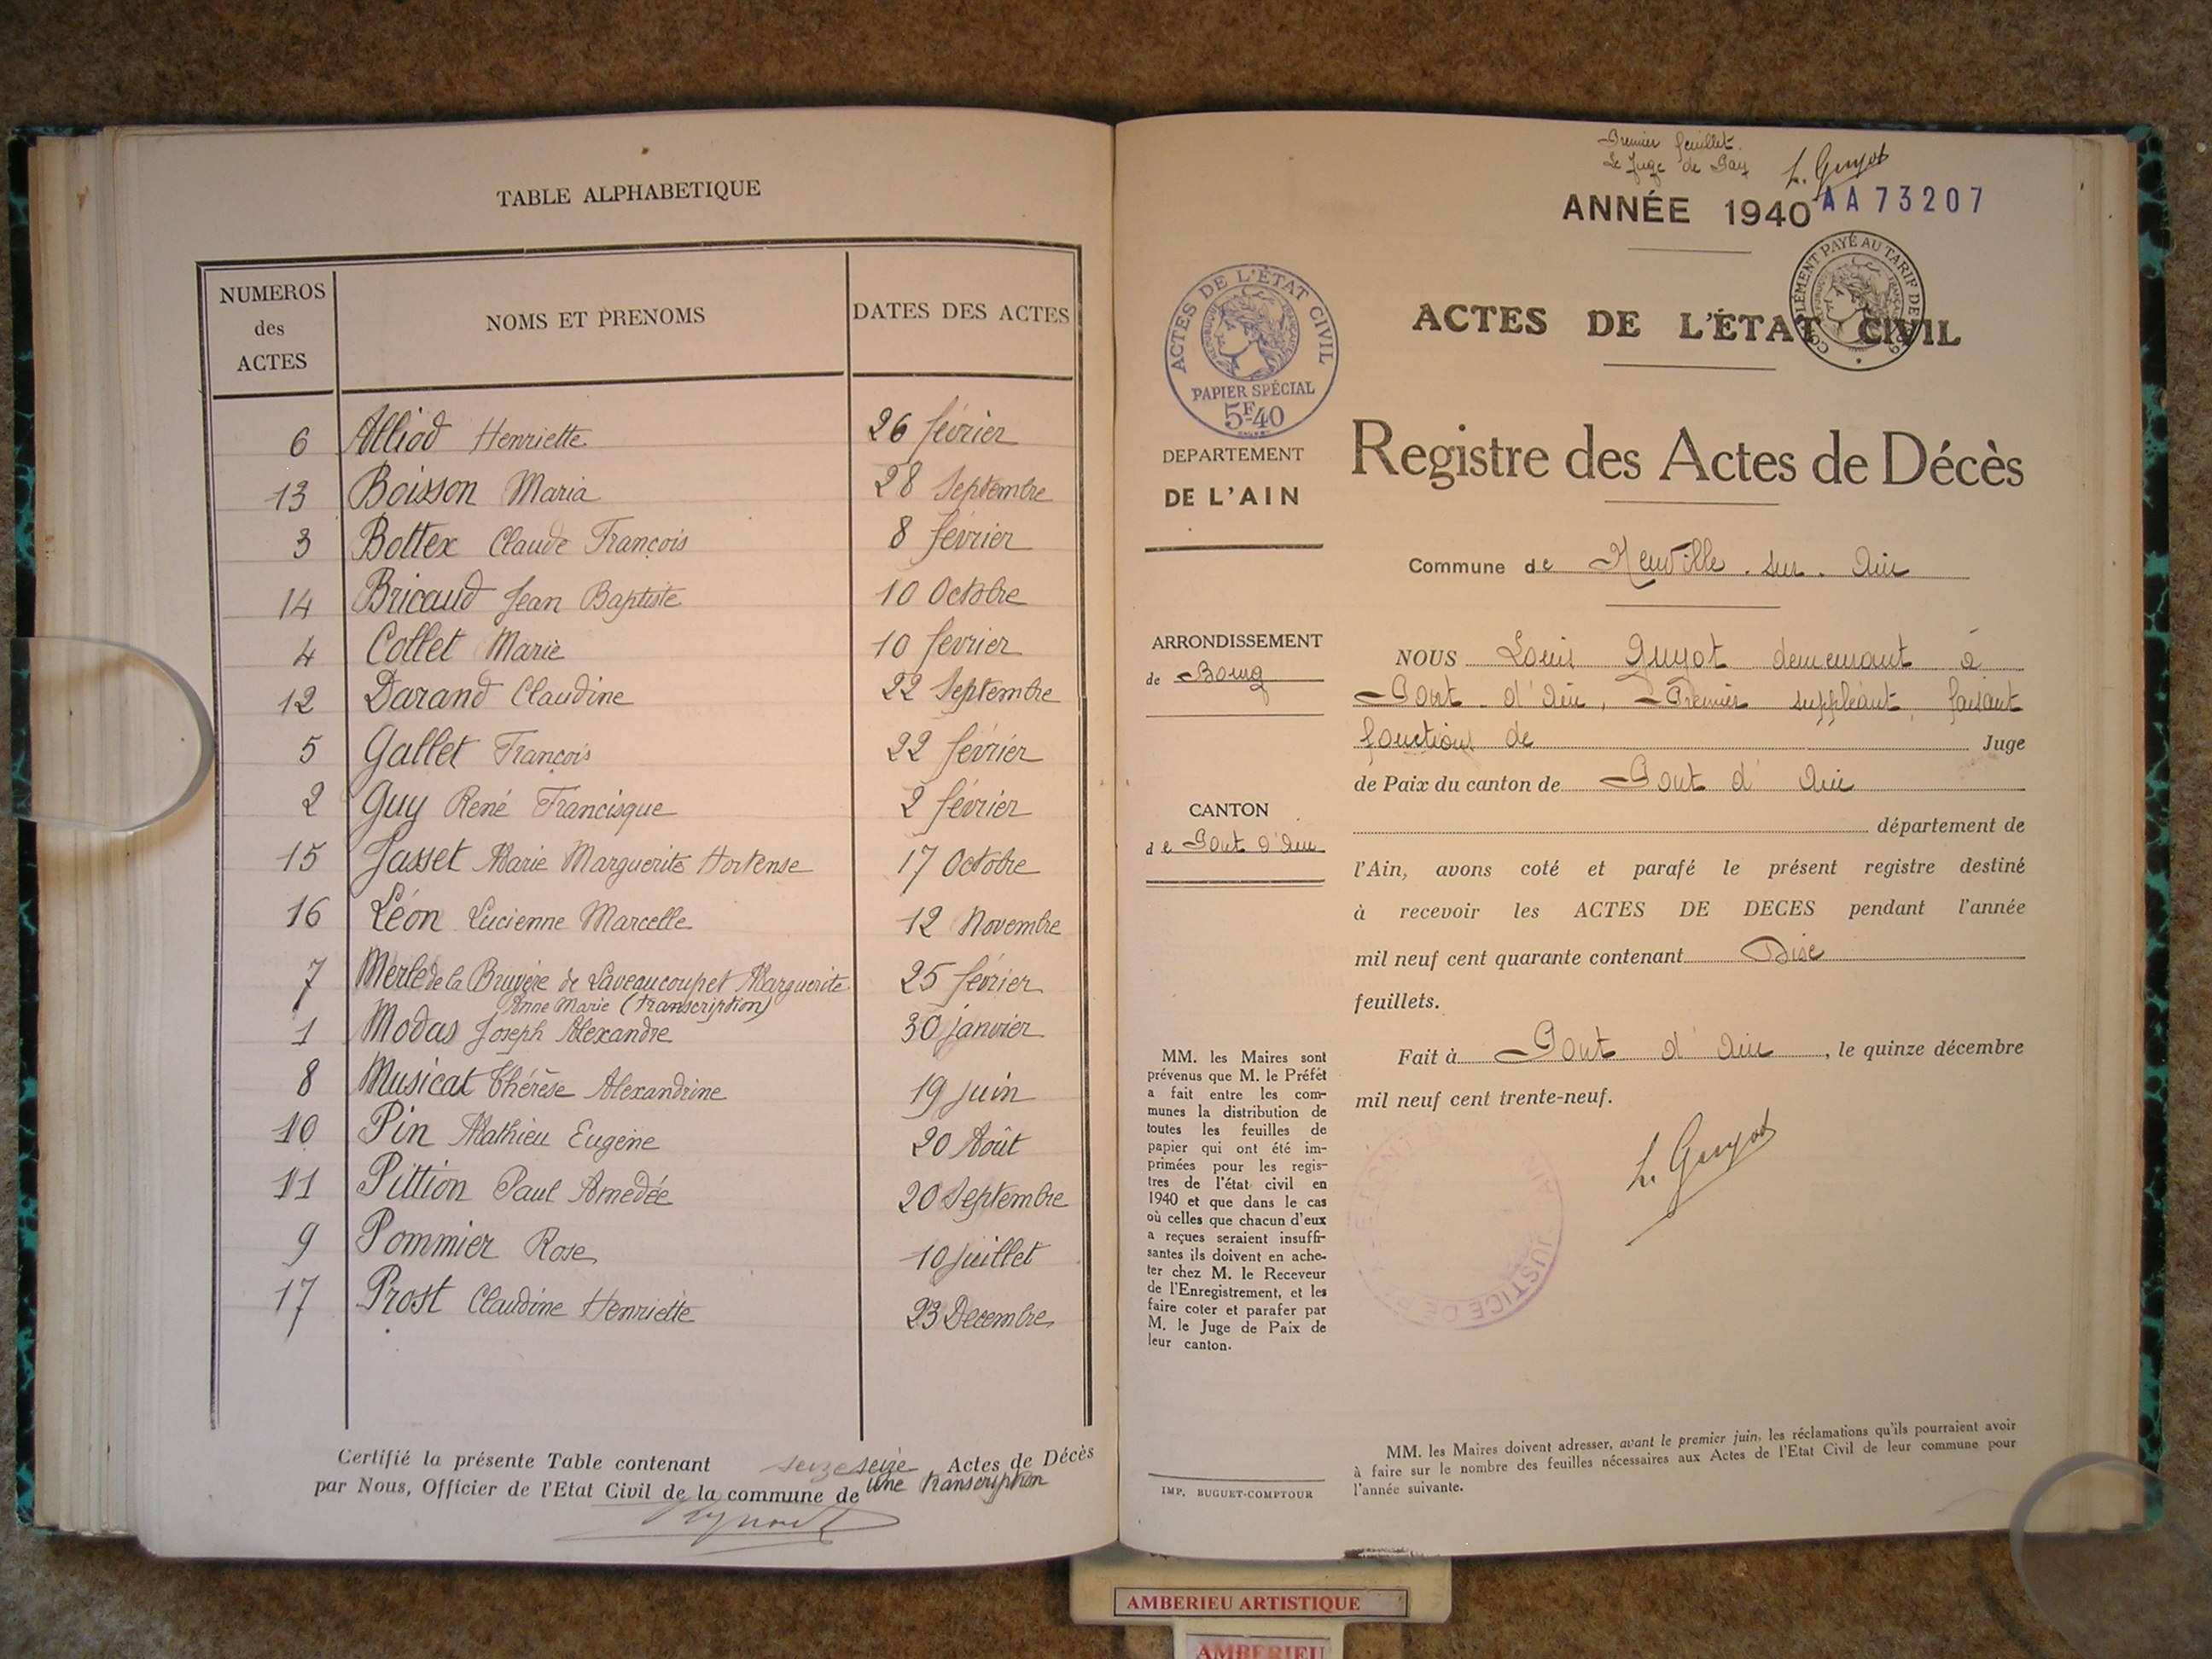 TABLE ALPHABETIQUE
NUMEROS
des
ACTES
NOMS ET PRENOMS
DATES DES ACTES
6 Alliod Henriette 26 février
13 Boisson Maria 28 Septembre
3 Bottex Claude François 8 février
14 Bricaud Jean Baptiste 10 Octobre
4 Collet Marie 10 fevrier
12 Darand Claudine 22 Septembre
5 Gallet François 22 février
2 Guy René Francisque 2 février
15 Jasset Marie Marguerite Hortense 17 Octobre
16 Léon Lucienne Marcelle 12 Novembre
7 Merle de la Bruyère de Laveaucoupet Marguerite 25 février
Anne Marie (transcription)
1 Modas Joseph Alexandre 30 janvier
8 Musicat Thérèse Alexandrine 19 juin
10 Pin Mathieu Eugène 20 Août
11 Pittion Paul Amedée 20 Septembre
9 Pommier Rose 10 juillet
17 Prost Claudine Henriette 23 Decembre
Certifié la présente Table contenant seize seize Actes de Décès
une transcription
par Nous, Officier de l'Etat Civil de la commune de
Premier feuillet.
Le Juge de Paix L. Guyot
ANNÉE 1940 AA73207
ACTES DE L'ÉTAT CIVIL
COMPLÉMENT PAYÉ AU TARIF DE
ACTES DE L'ÉTAT CIVIL
RÉPUBLIQUE FRANÇAISE
PAPIER SPÉCIAL
5F40
DEPARTEMENT
DE L'AIN
Registre des Actes de Décès
Commune de Neuville-sur-Ain
ARRONDISSEMENT
de Bourg
CANTON
de Pont d'Ain
NOUS Louis Guyot demeurant à
Pont-d'Ain, Premier suppléant, faisant
fonctions de Juge
de Paix du canton de Pont d'Ain
département de
l'Ain, avons coté et parafé le présent registre destiné
à recevoir les ACTES DE DECES pendant l'année
mil neuf cent quarante contenant Dix
feuillets.
Fait à Pont d'Ain, le quinze décembre
mil neuf cent trente-neuf.
L. Guyot
JUSTICE DE
MM. les Maires sont
prévenus que M. le Préfet
a fait entre les com-
munes la distribution de
toutes les feuilles de
papier qui ont été im-
primées pour les regis-
tres de l'état civil en
1940 et que dans le cas
où celles que chacun d'eux
a reçues seraient insuffi-
santes ils doivent en ache-
ter chez M. le Receveur
de l'Enregistrement, et les
faire coter et parafer par
M. le Juge de Paix de
leur canton.
IMP. BUGUET-COMPTOUR
MM. les Maires doivent adresser, avant le premier juin, les réclamations qu'ils pourraient avoir
à faire sur le nombre des feuilles nécessaires aux Actes de l'Etat Civil de leur commune pour
l'année suivante.
AMBERIEU ARTISTIQUE
AMBERIEU